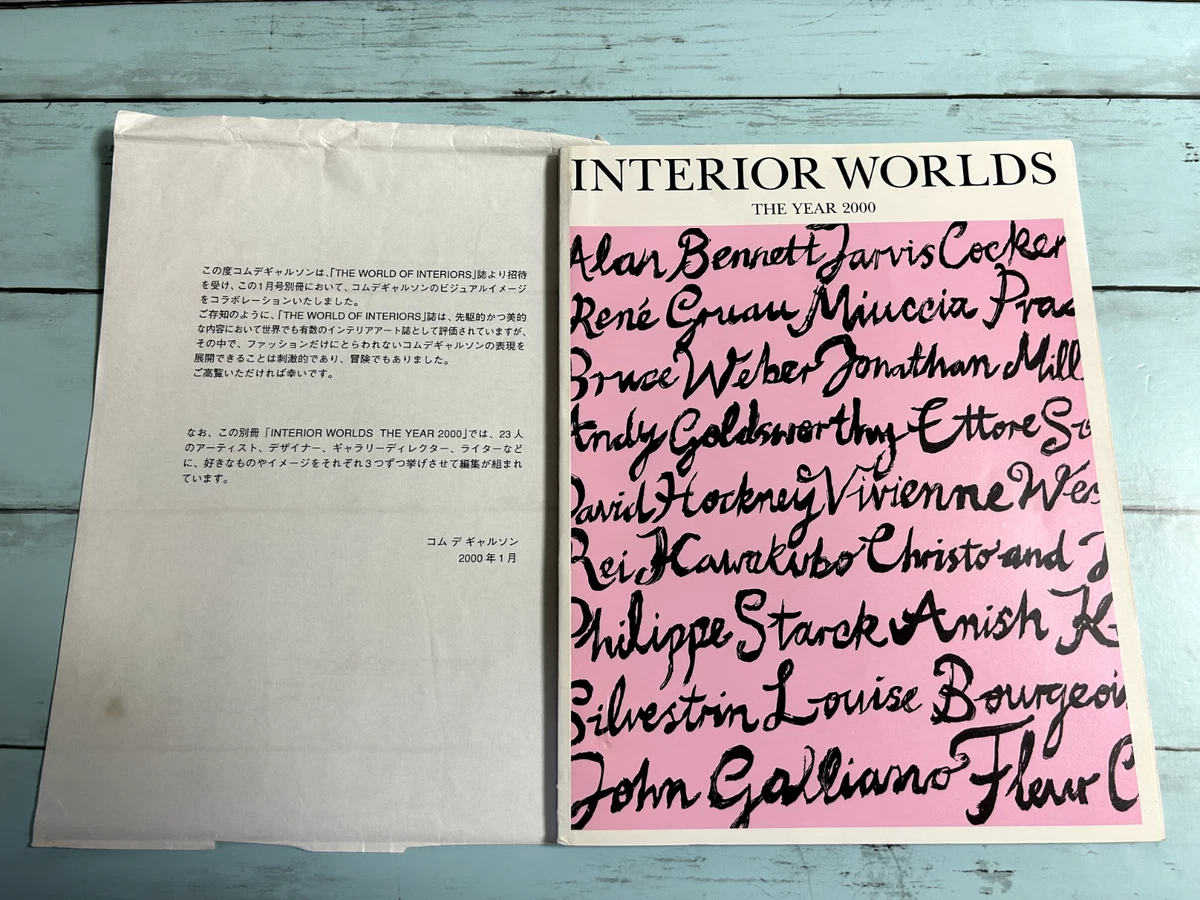 この度コムデギャルソンは、「THE WORLD OF INTERIORS」誌より招待
を受け、この1月号別冊において、コムデギャルソンのビジュアルイメージ
をコラボレーションいたしました。
ご存知のように、「THE WORLD OF INTERIORS」誌は、先駆的かつ美的
な内容において世界でも有数のインテリアアート誌として評価されていますが、
その中で、ファッションだけにとらわれないコムデギャルソンの表現を
展開できることは刺激的であり、冒険でもありました。
ご高覧いただければ幸いです。
なお、この別冊「INTERIOR WORLDS THE YEAR 2000」では、23人
のアーティスト、デザイナー、ギャラリーディレクター、ライターなど
に、好きなものやイメージをそれぞれ3つずつ挙げさせて編集が組まれ
ています。
コム デ ギャルソン
2000年1月
INTERIOR WORLDS
THE YEAR 2000
Alan Bennett Jarvis Cocker
René Gruau Miuccia Prad
Bruce Weber Jonathan Mill
Andy Goldsworthy Ettore So
David Hockney Vivienne Wes
Rei Kawakubo Christo and J
Philippe Starck Anish K
Silvestrin Louise Bourgeoi
John Galliano Fleur C